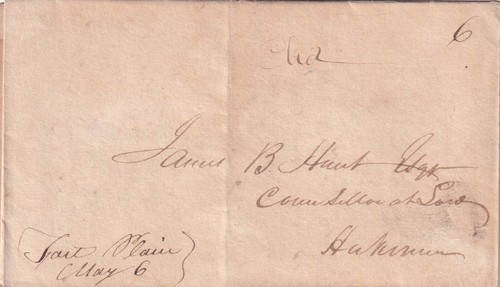 6
James B. Hunt Esqr
Counsellor at Law
Herkimer
Fort Plain
May 6